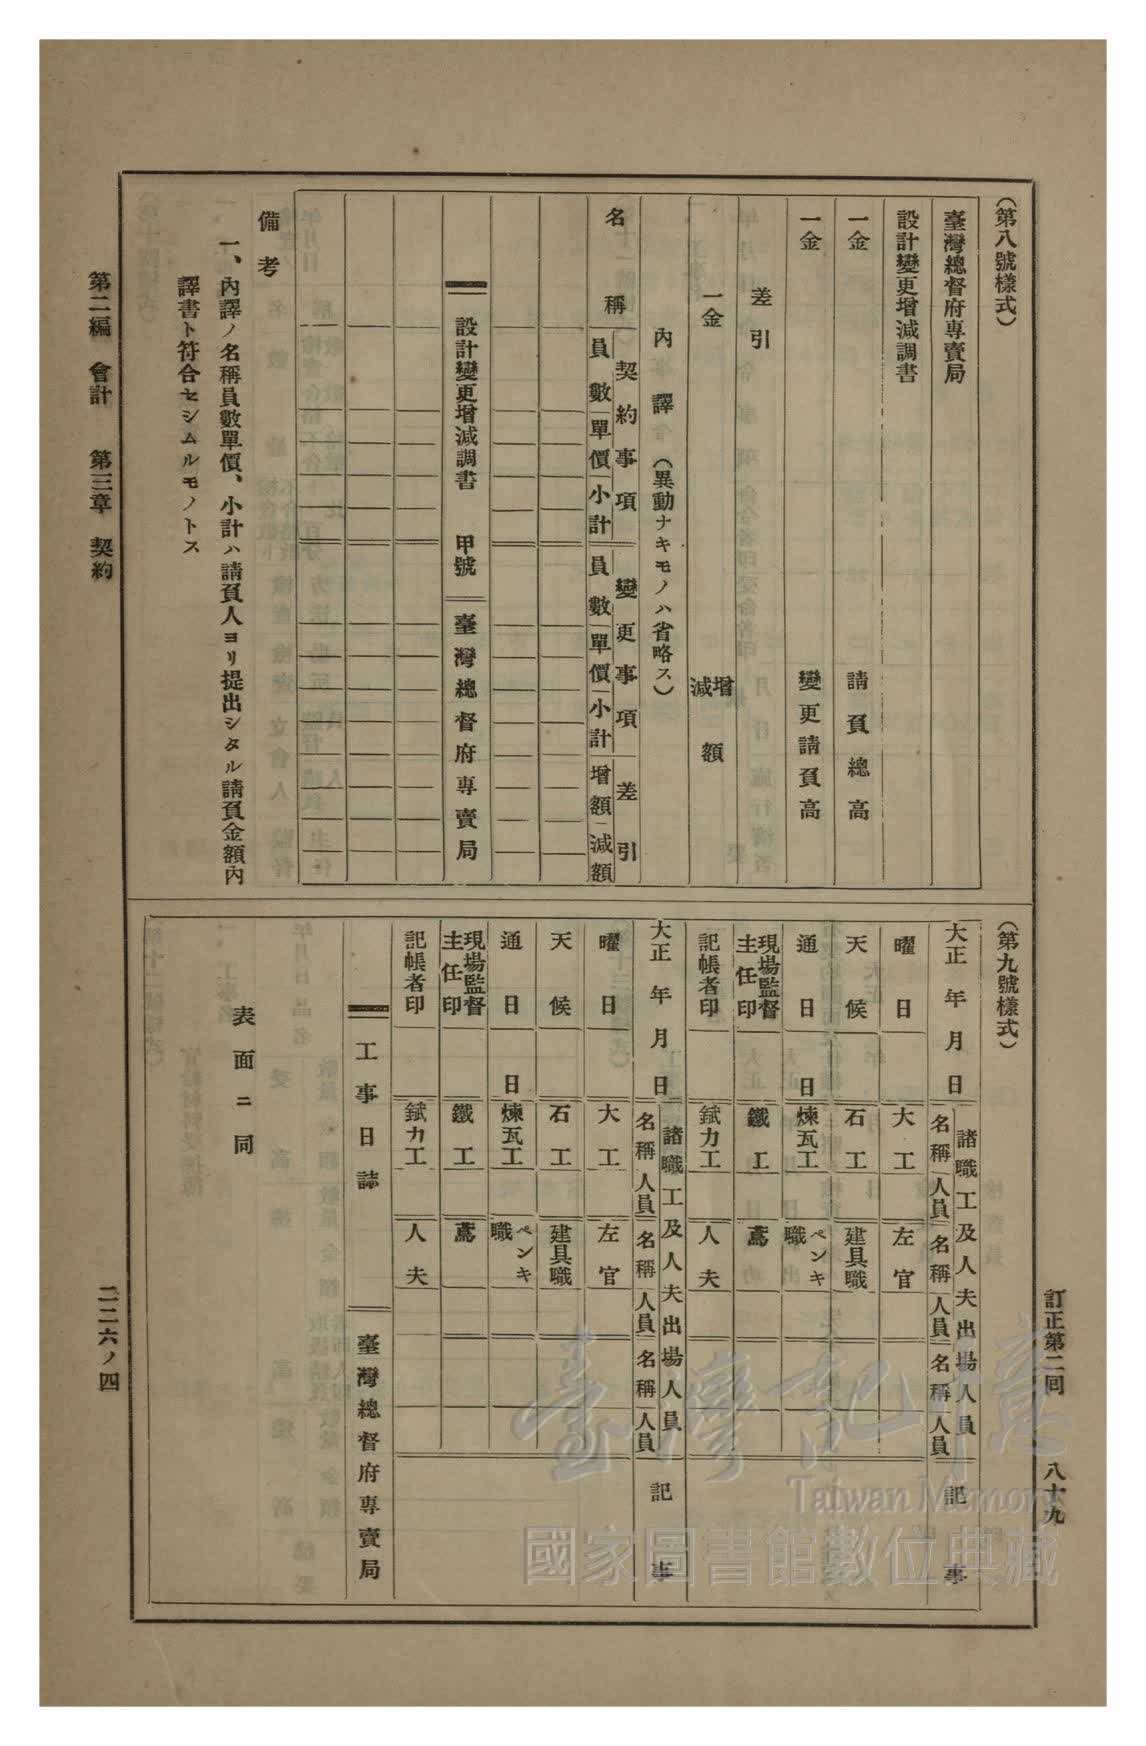 訂正第二回　八十九
(第八號樣式)
臺灣總督府專賣局
設計變更增減調書
一金　請負總高
一金　變更請負高
差引
一金　增減額
內譯(異動ナキモノハ省略ス)
名稱　契約事項　變更事項　差引
員數　單價　小計　員數　單價　小計　增額　減額
設計變更增減調書　甲號　臺灣總督府專賣局
備考
一、內譯ノ名稱員數單價、小計ハ請負人ヨリ提出シタル請負金額內
譯書ト符合セシムルモノトス
(第九號樣式)
大正　年　月　日　諸職工及人夫出場人員　記事
名稱　人員　名稱　人員　名稱　人員
曜日　大工　左官
天候　石工　建具職
通日　日　煉瓦工　ペンキ職
現場監督主任印　鐵工　鳶
記帳者印　錻力工　人夫
大正　年　月　日　諸職工及人夫出場人員　記事
名稱　人員　名稱　人員　名稱　人員
曜日　大工　左官
天候　石工　建具職
通日　日　煉瓦工　ペンキ職
現場監督主任印　鐵工　鳶
記帳者印　錻力工　人夫
工事日誌　臺灣總督府專賣局
表面ニ同
第二編　會計　第三章　契約
二二六ノ四
臺灣記憶
Taiwan Memory
國家圖書館數位典藏